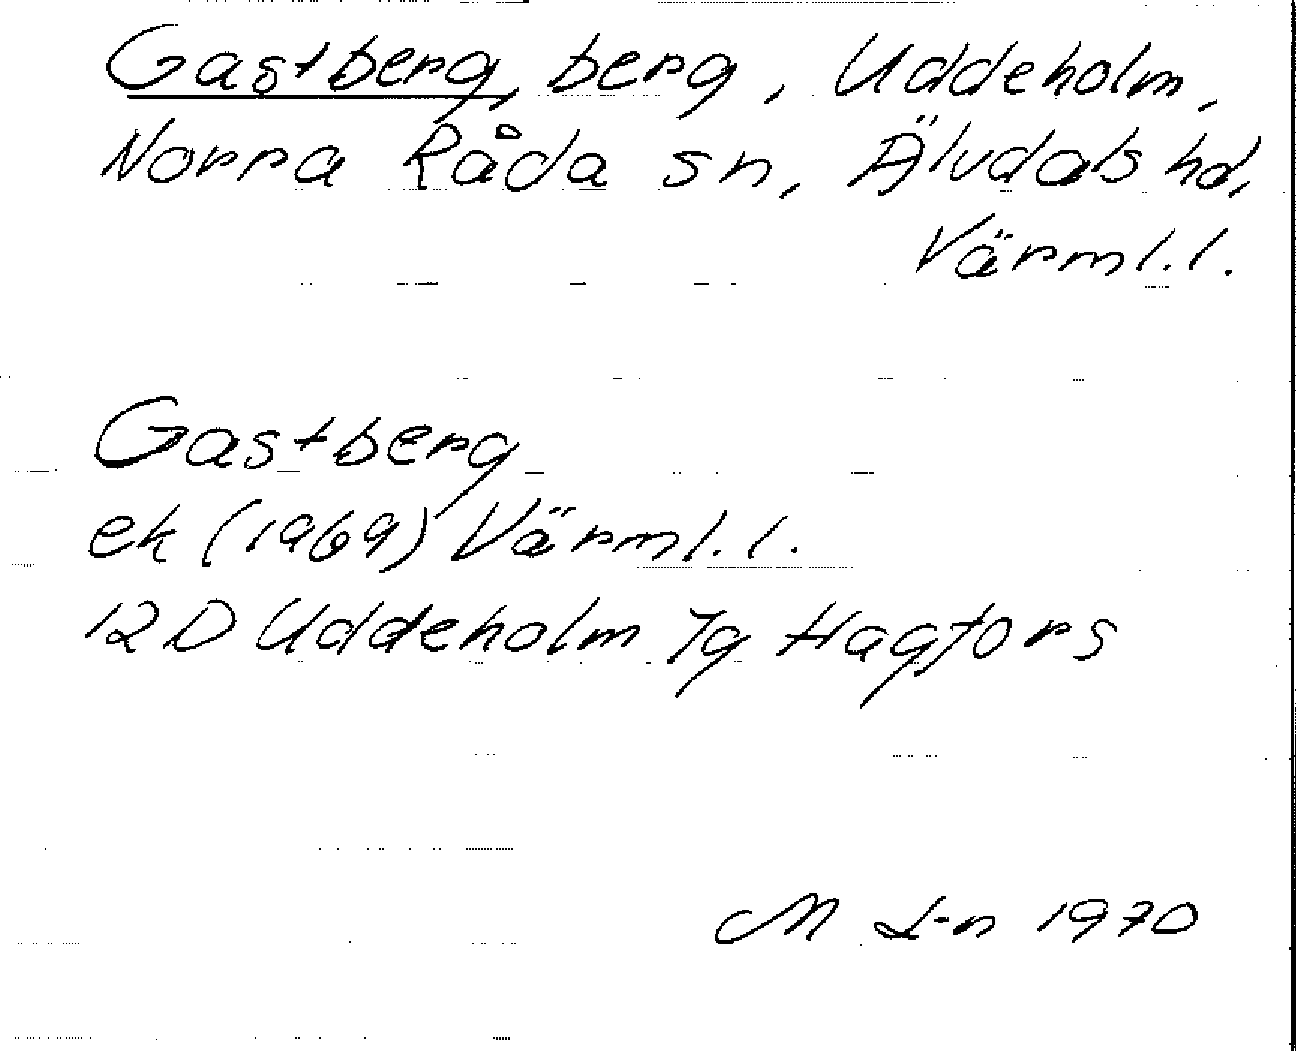 Gastberg, berg, Uddeholm,
Norra Råda sn, Älvdals hd,
Värml.l.
Gastberg
ek (1969) Värml.l.
12D Uddeholm 7g Hagfors
M L-n 1970